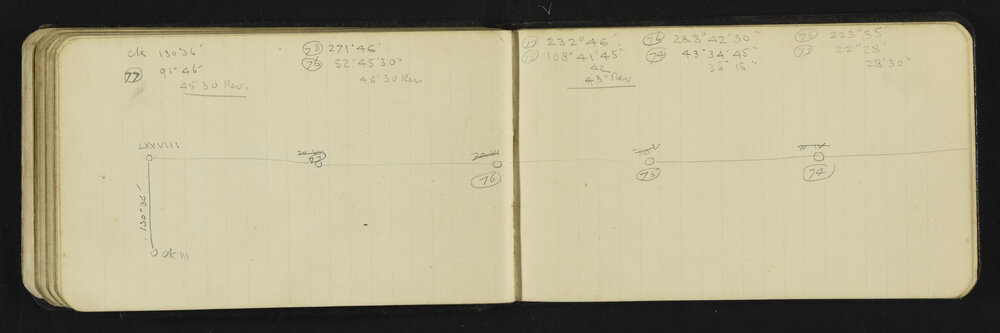 ck 130°36'
77 91°46'
45'30 Rev.
78 271°46'
76 52°45'30"
46'30 Rev
77 232°46'
75 108°41'45"
42
43" Rev
76 288°42'30"
74 43°34'45"
35'15"
75 223°35'
73 22°28'
28'30"
LXXVIII
130°36'
ck III
77
76
75
74